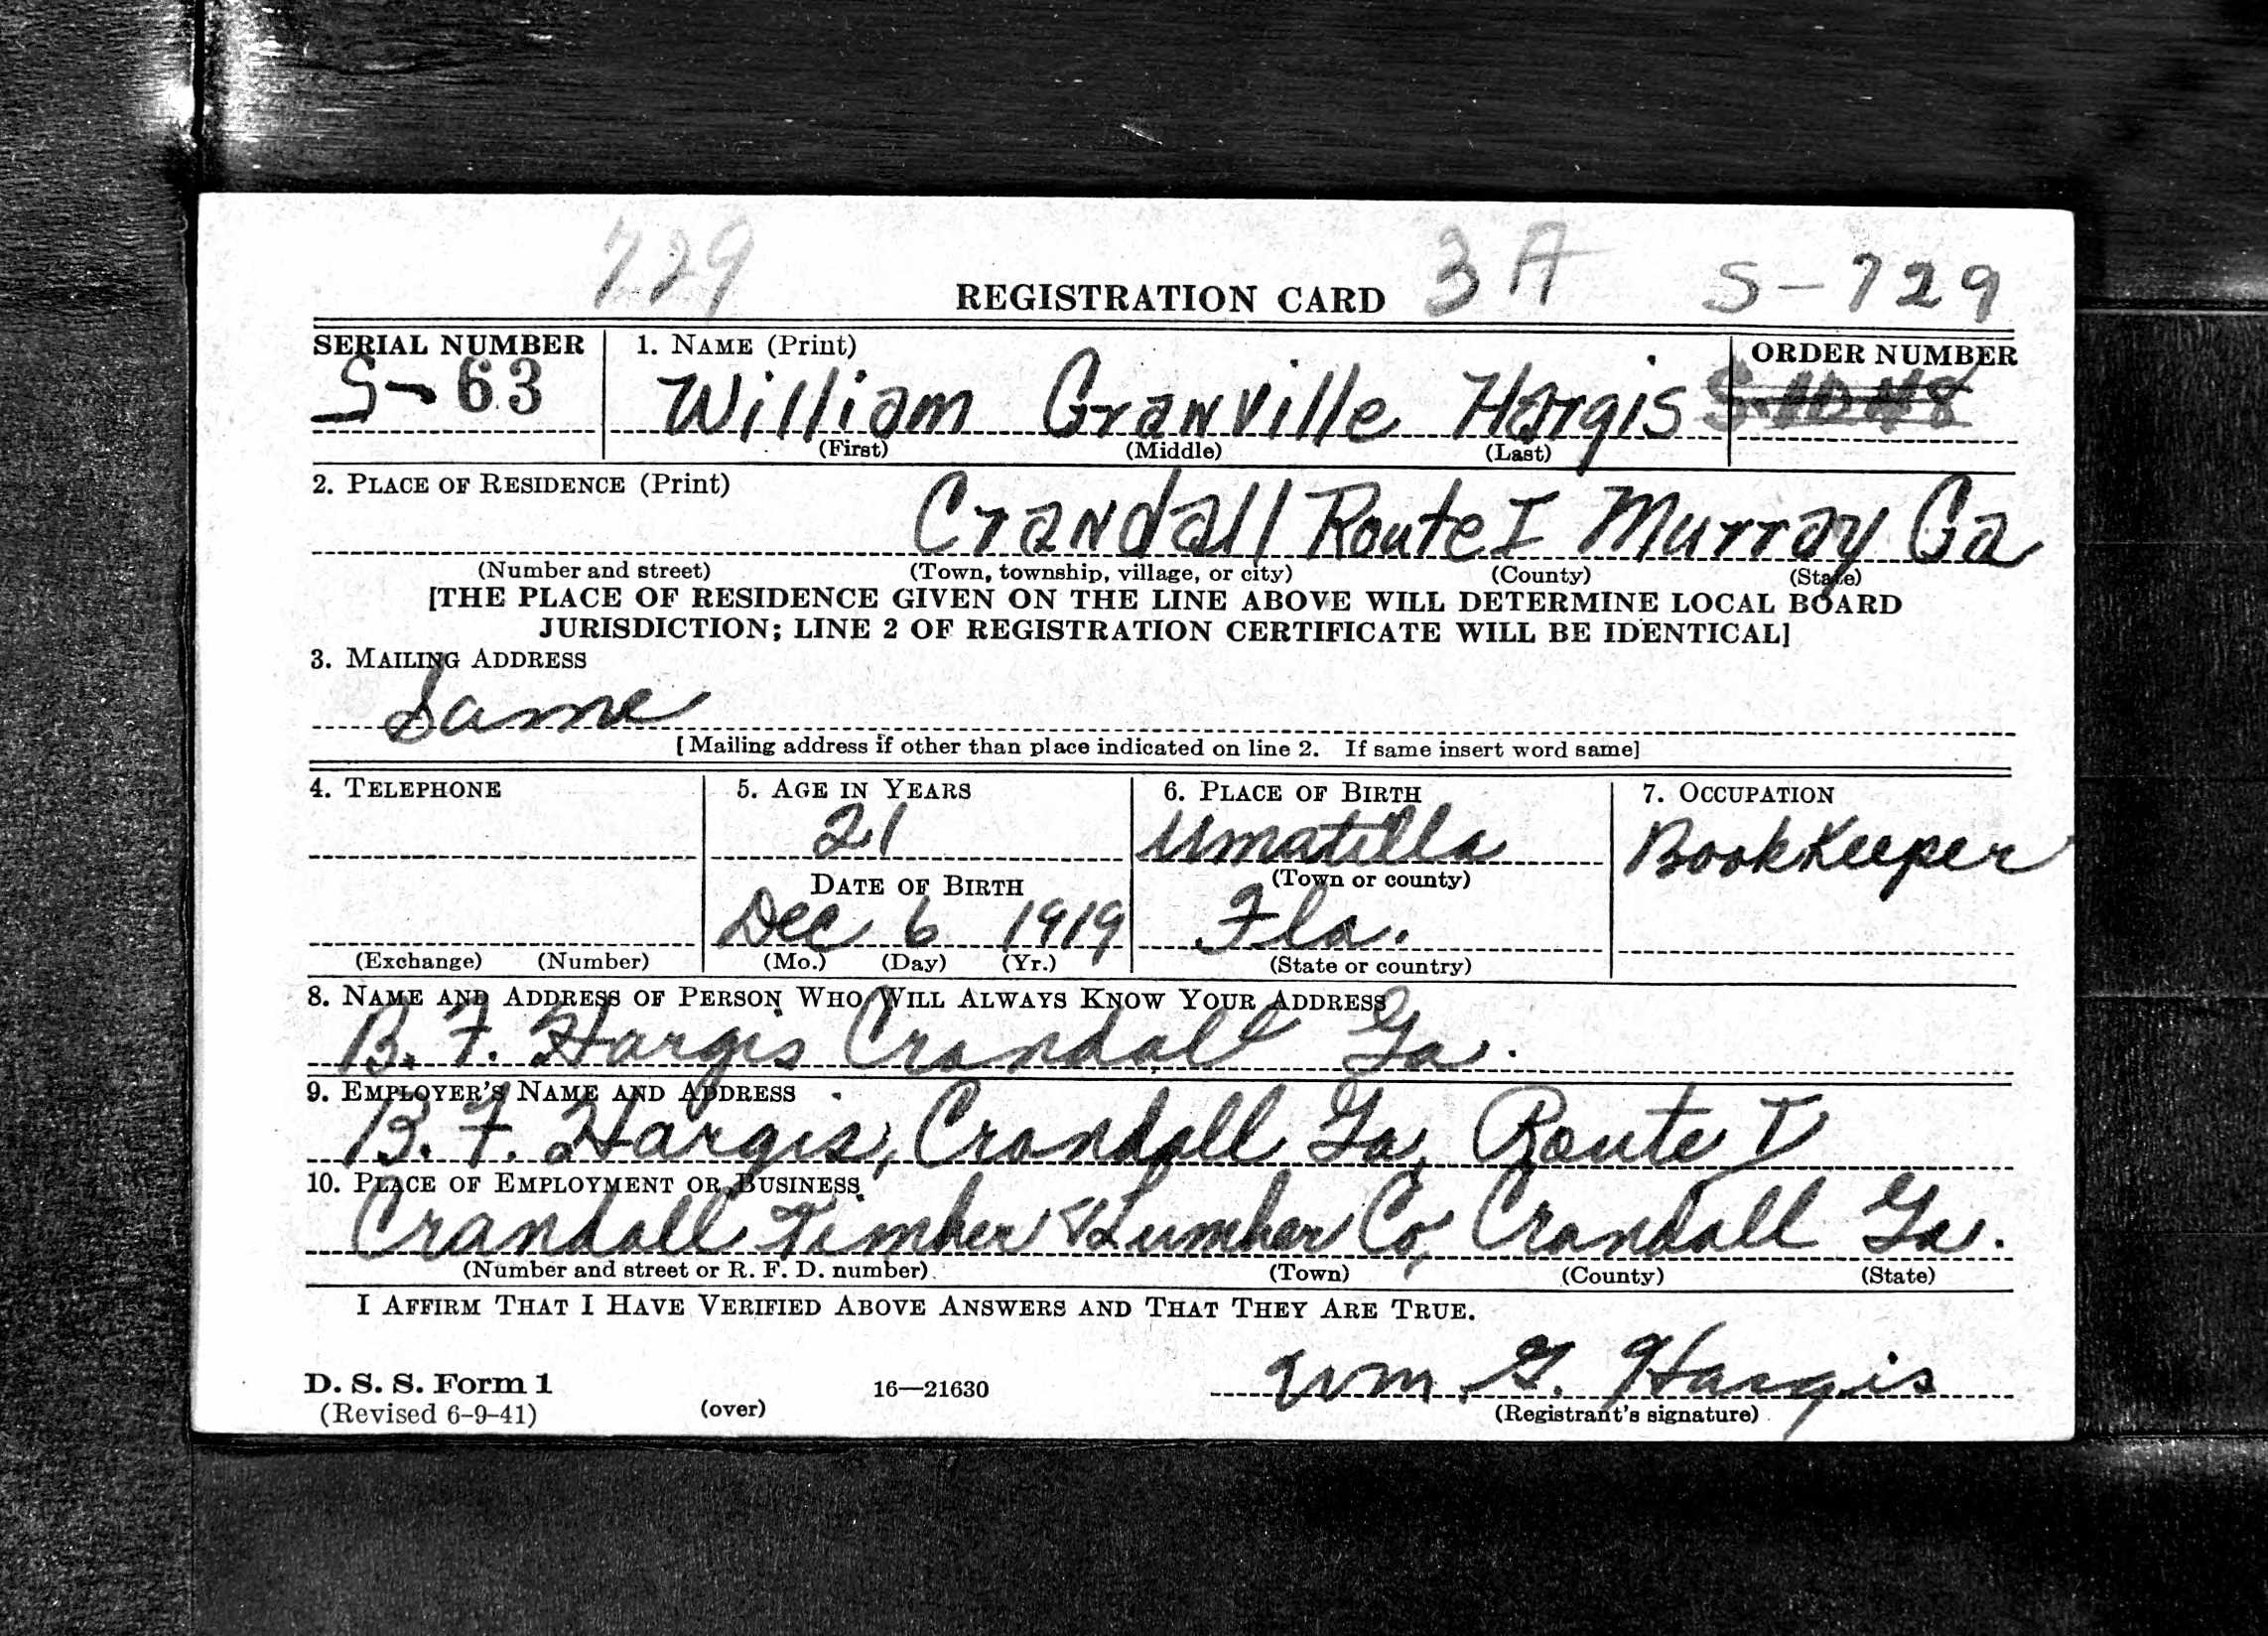 729 3A S-729
REGISTRATION CARD
SERIAL NUMBER 1. NAME (Print) ORDER NUMBER
S-63 William Granville Hargis
(First) (Middle) (Last)
2. PLACE OF RESIDENCE (Print)
Crandall Route I Murray Ga
(Number and street) (Town, township, village, or city) (County) (State)
[THE PLACE OF RESIDENCE GIVEN ON THE LINE ABOVE WILL DETERMINE LOCAL BOARD
JURISDICTION; LINE 2 OF REGISTRATION CERTIFICATE WILL BE IDENTICAL]
3. MAILING ADDRESS
Same
[Mailing address if other than place indicated on line 2. If same insert word same]
4. TELEPHONE 5. AGE IN YEARS 6. PLACE OF BIRTH 7. OCCUPATION
21 Umatilla BookKeeper
DATE OF BIRTH (Town or county)
Dec 6 1919 Fla.
(Exchange) (Number) (Mo.) (Day) (Yr.) (State or country)
8. NAME AND ADDRESS OF PERSON WHO WILL ALWAYS KNOW YOUR ADDRESS
B. F. Hargis Crandall Ga.
9. EMPLOYER'S NAME AND ADDRESS
B. F. Hargis, Crandall Ga, Route I
10. PLACE OF EMPLOYMENT OR BUSINESS
Crandall Timber & Lumber Co, Crandall Ga.
(Number and street or R. F. D. number) (Town) (County) (State)
I AFFIRM THAT I HAVE VERIFIED ABOVE ANSWERS AND THAT THEY ARE TRUE.
Wm. G. Hargis
D. S. S. Form 1 16—21630
(Revised 6-9-41) (over) (Registrant's signature)